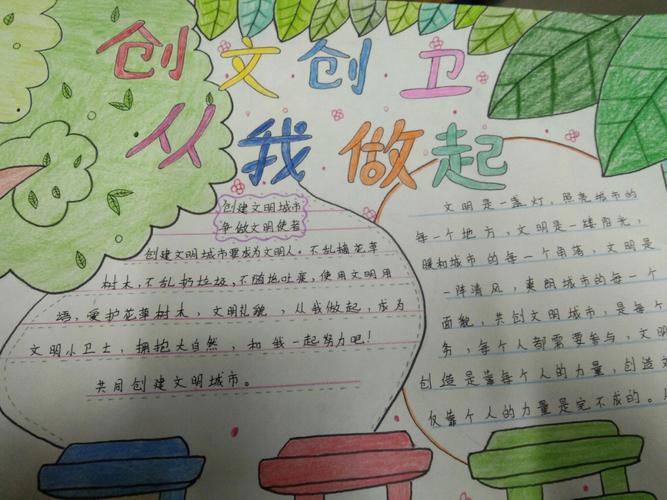 创文创卫
从我做起
创建文明城市
争做文明使者
创建文明城市要成为文明人。不乱摘花草
树木,不乱扔垃圾,不随地吐痰,使用文明用
语,爱护花草树木,文明礼貌,从我做起,成为
文明小卫士,拥抱大自然,和我一起努力吧!
共同创建文明城市。
文明是一盏灯,照亮城市的
每一个地方,文明是一缕阳光,
暖和城市的每一个角落,文明是
一阵清风,爽朗城市的每一个
面貌,共创文明城市,是每个
务,每个人都需要参与,文明
创造是靠每个人的力量,创造文
仅靠个人的力量是完不成的。